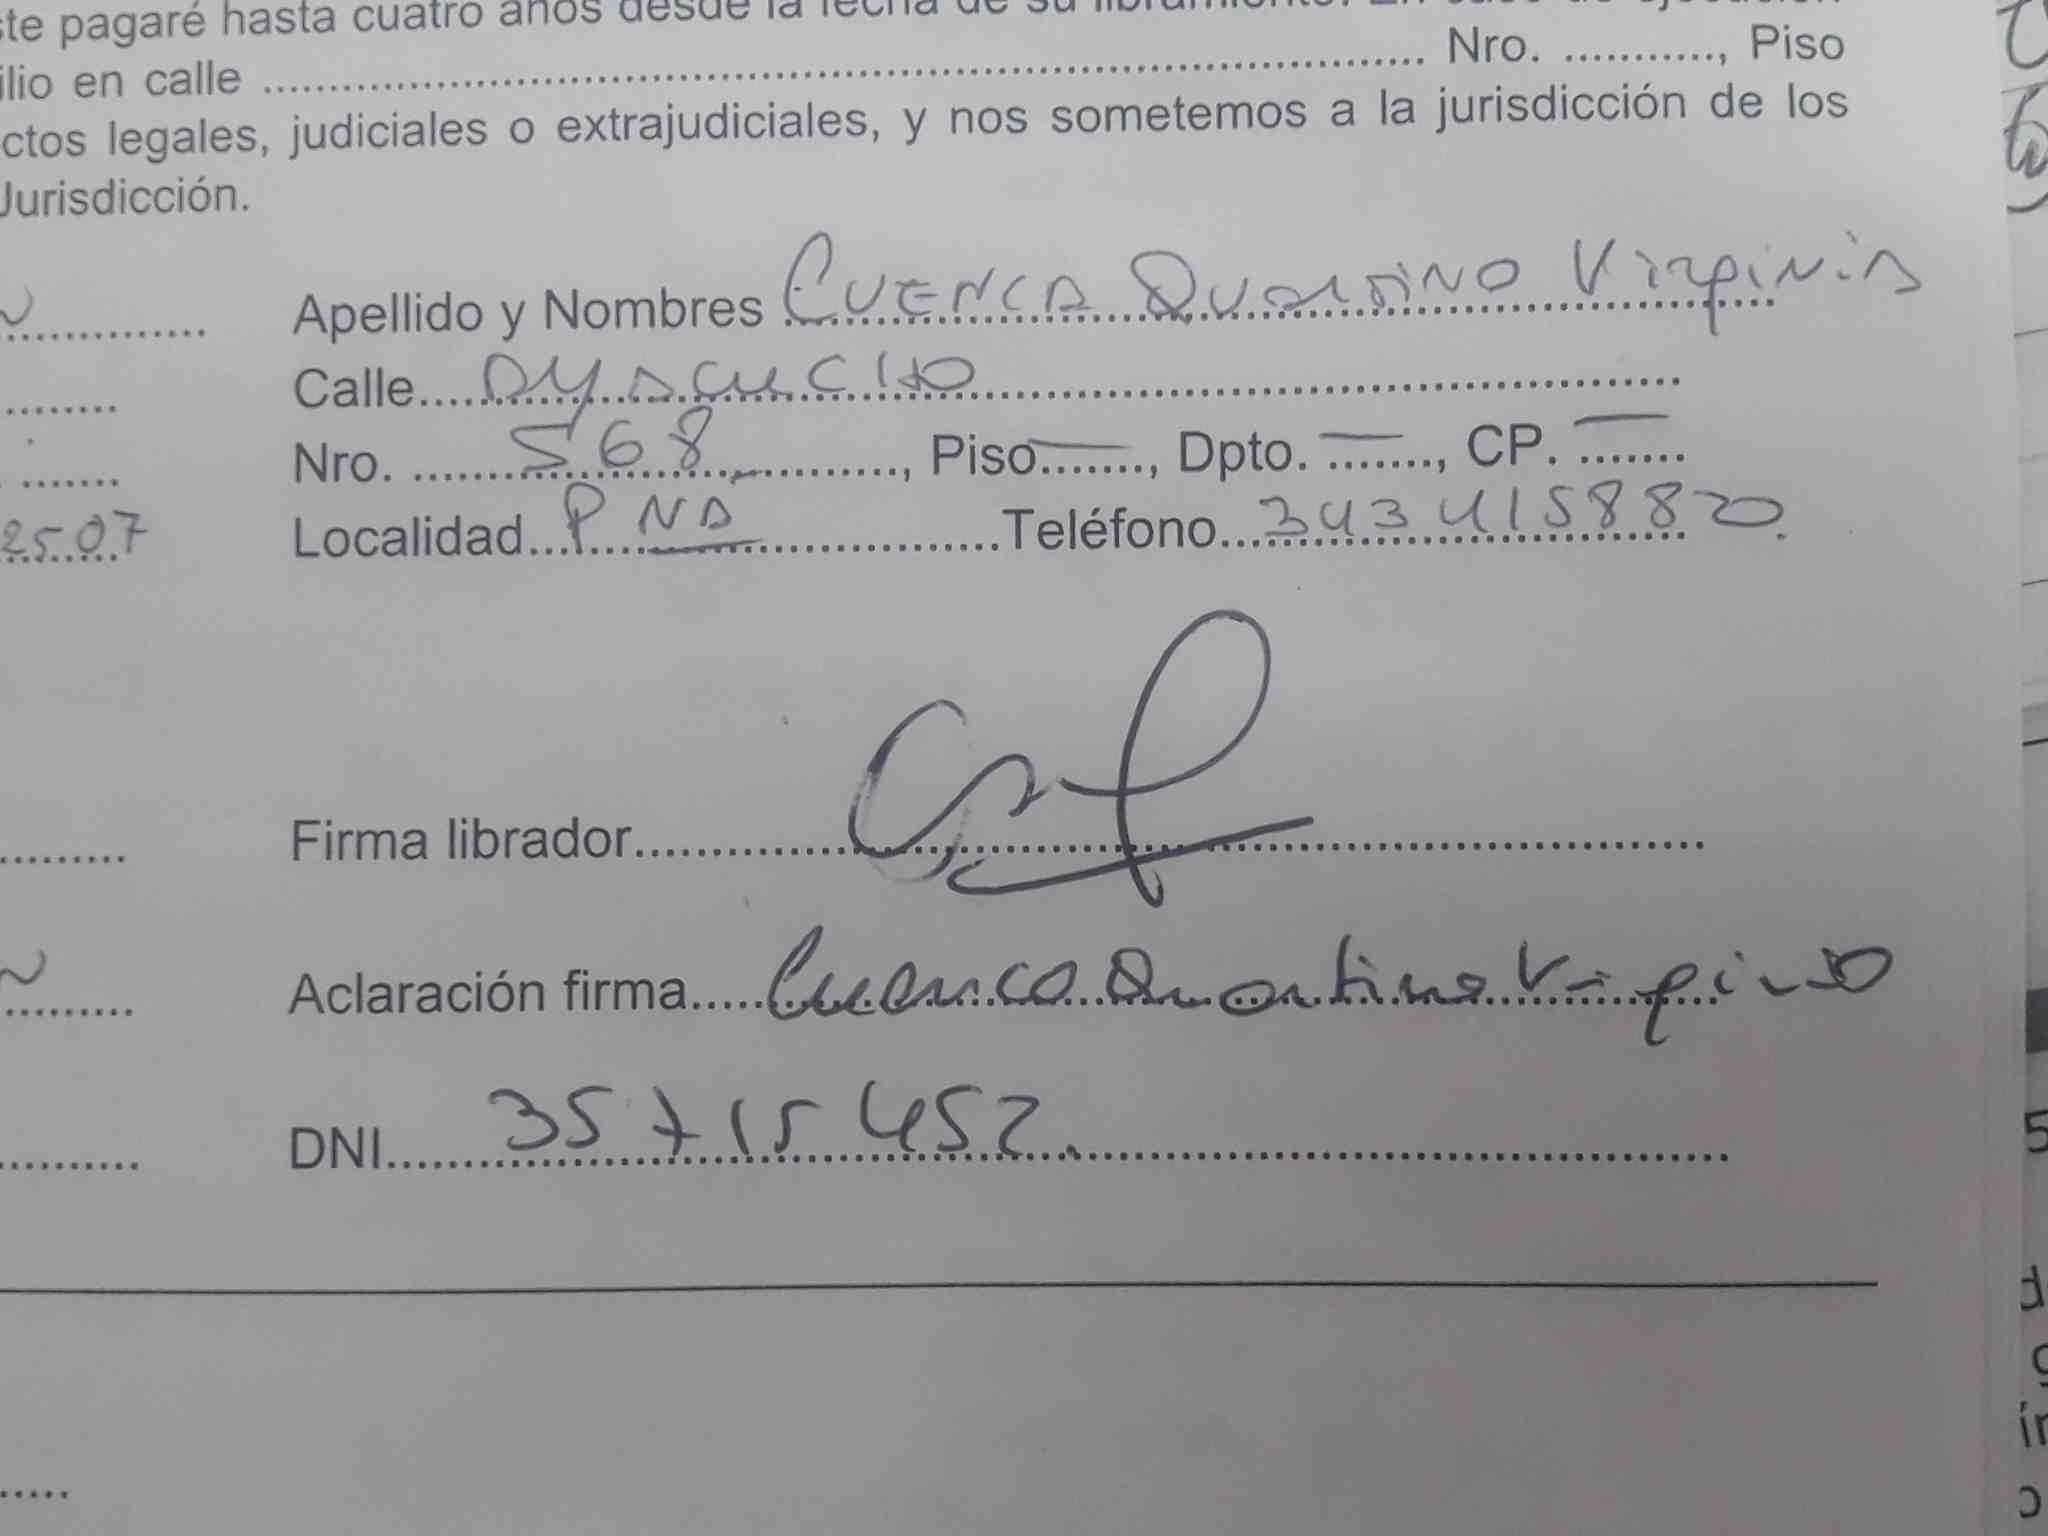 ste pagaré hasta cuatro años desde la fecha de su libramiento. En caso de ejecución
ilio en calle .......... Nro. .........., Piso
ctos legales, judiciales o extrajudiciales, y nos sometemos a la jurisdicción de los
Jurisdicción.
Apellido y Nombres CUENCA QUARTINO VIRGINIA
Calle.... AYACUCHO
Nro. .... 568 ...., Piso — ...., Dpto. — ...., CP. —
2507 Localidad.... PNA ....Teléfono... 3434158820.
Firma librador....
Aclaración firma..... Cuenca Quartino Virginia
DNI.... 35715452.